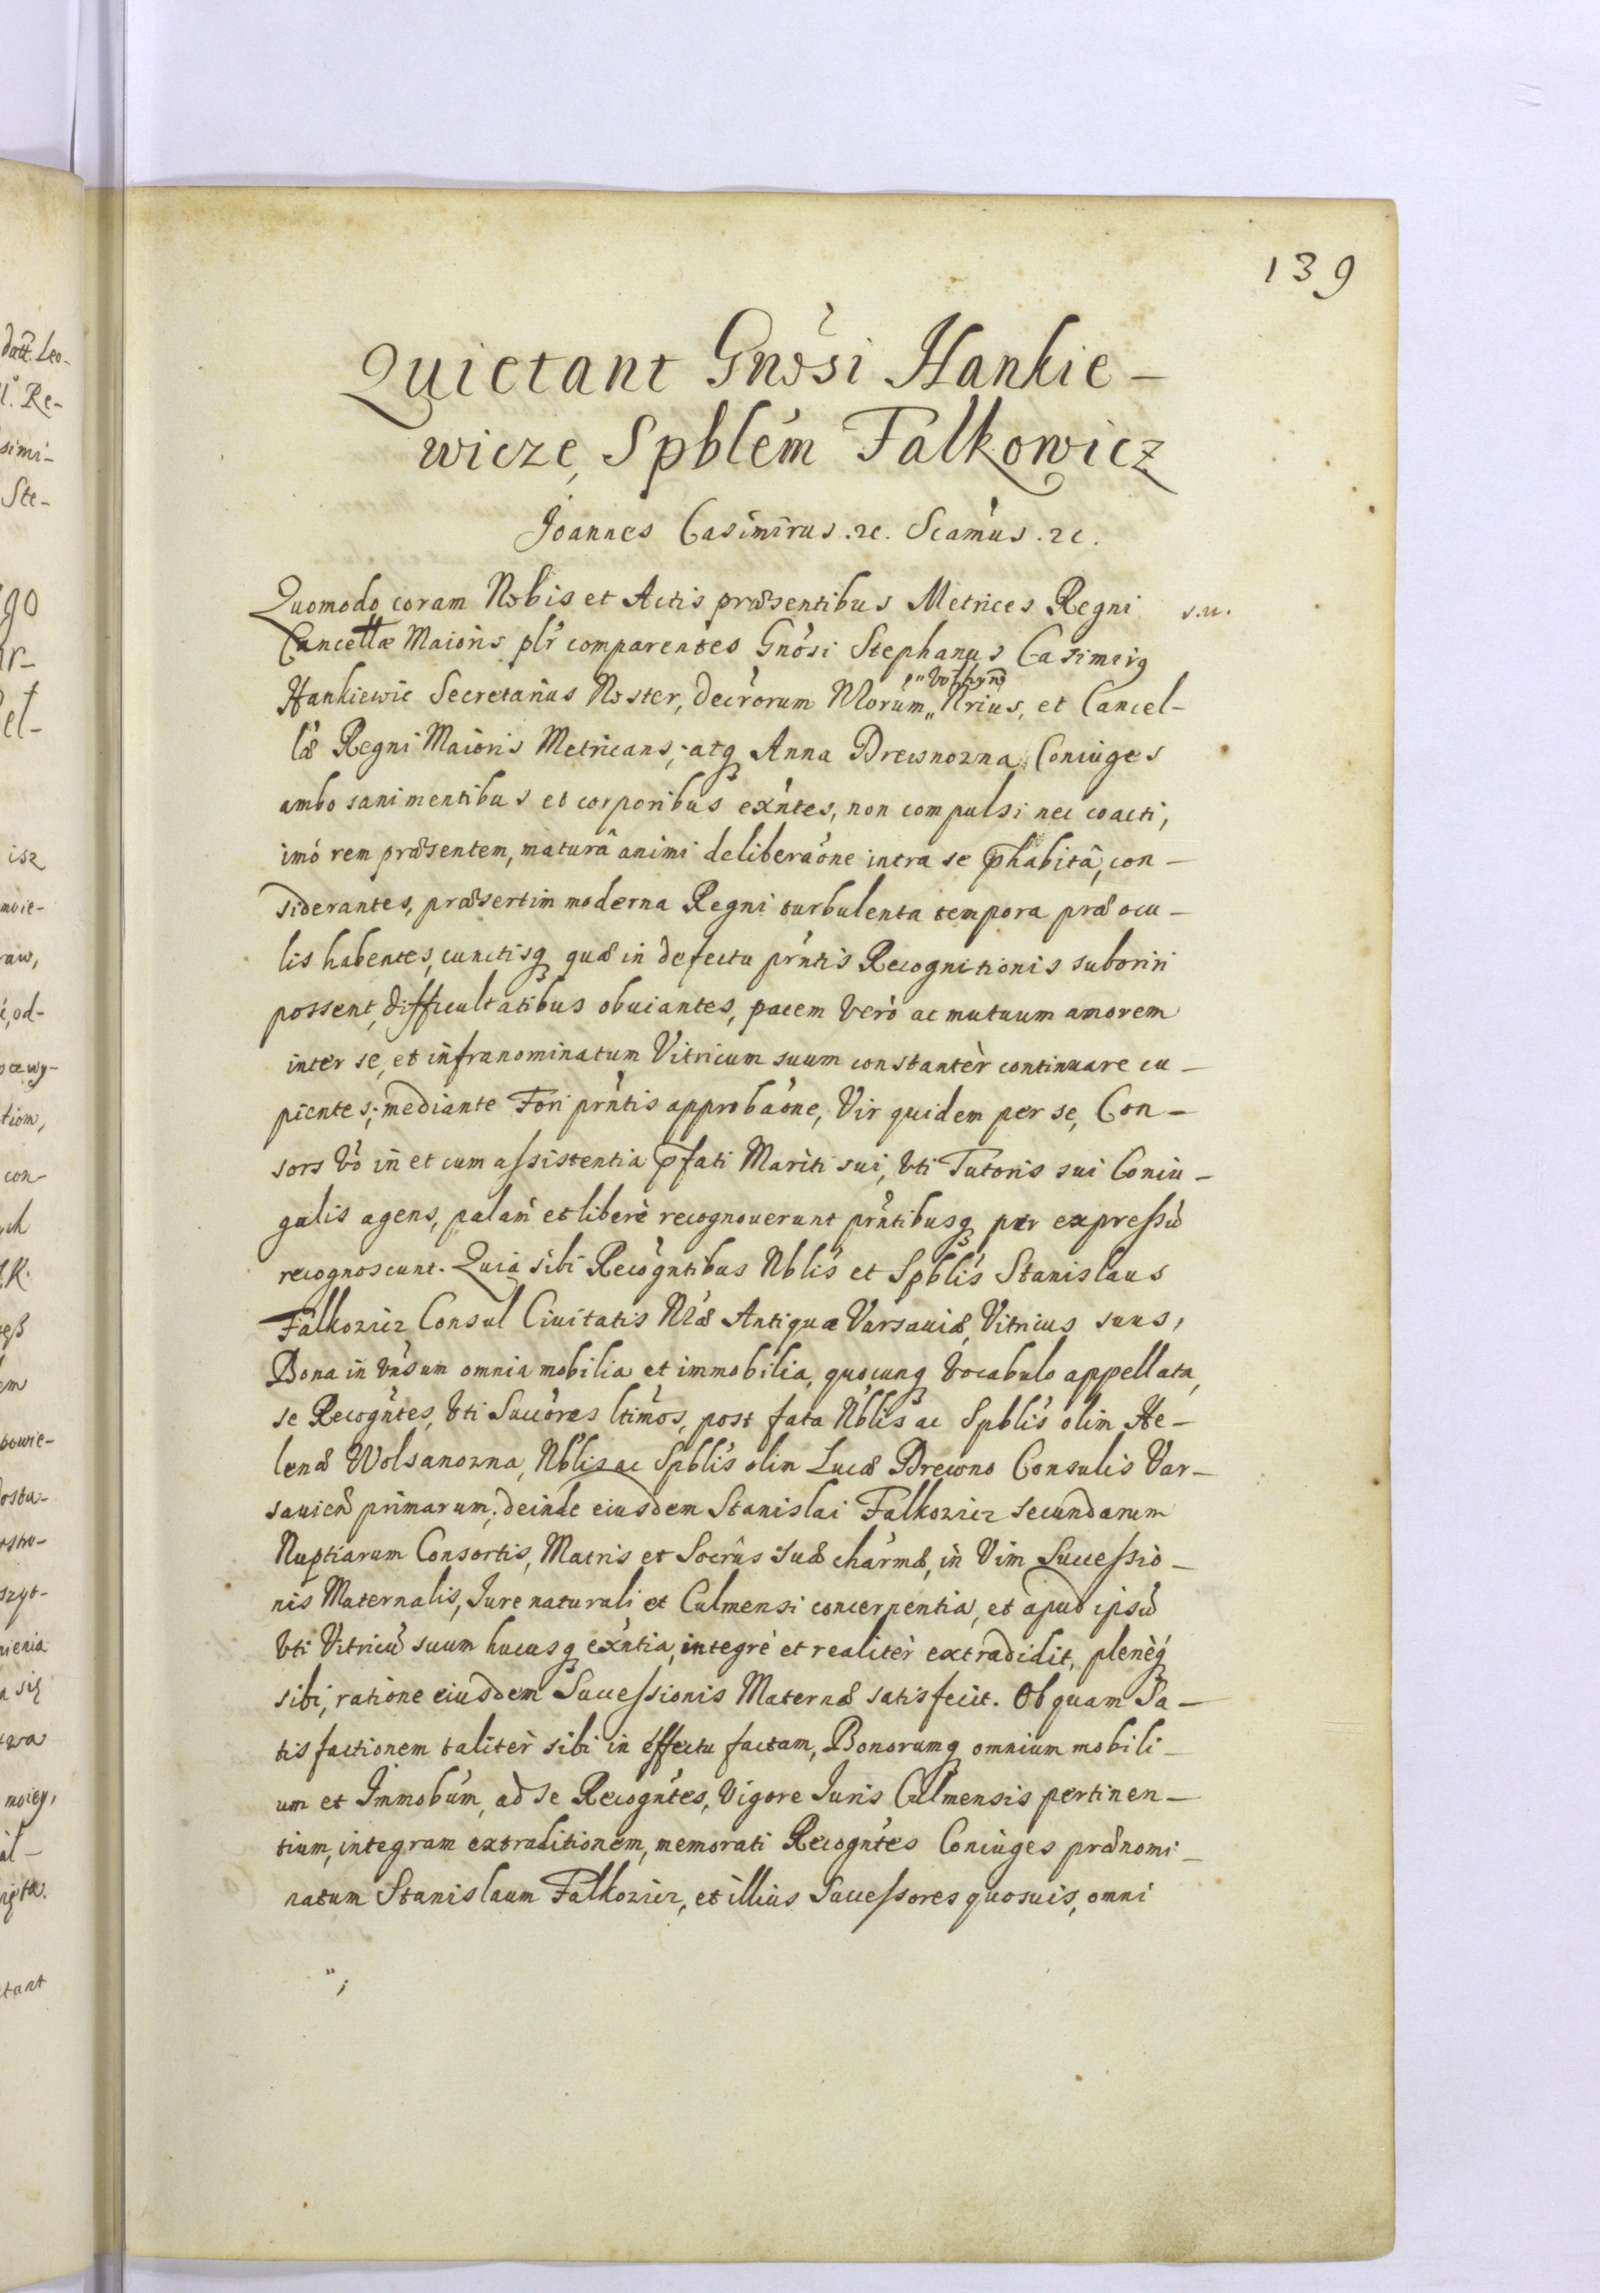 139
Quietant Gnosi Hankie-
wicze, Spblem Falkowicz
Joannes Casimirus .2c. Scamus .2c.
Quomodo coram Nobis et Actis præsentibus Metrices Regni s.n.
Cancellæ Maioris plr comparentes Gnosi Stephanus Casimirg
Hankiewic Secretarius Noster, Decrorum Nlorum,, Nrius, et Cancel-
læ Regni Maioris Metricans, atq Anna Drewnozna Coniuges
ambo sani mentibus et corporibus exntes, non compulsi nec coacti,
imó rem præsentem, maturâ animi deliberaone intra se phabitâ, con-
siderantes, præsertim moderna Regni turbulenta tempora præ ocu-
lis habentes, cunctisq quæ in defectu prntis Recognitionis suboriri
possent, difficultatibus obuiantes, pacem verò ac mutuum amorem
inter se, et infranominatum Vitricum suum constantèr continuare cu-
pientes; mediante Fori prntis approbaone, Vir quidem per se, Con-
sors vo in et cum assistentia pfati Mariti sui, vti Tutoris sui Coniu-
galis agens, palam et liberè recognouerunt prntibusq per expressũ
recognoscunt. Quia sibi Recogntibus Nblis et Spblis Stanislaus
Falkozicz Consul Ciuitatis Nræ Antiquæ Varsauiæ, Vitricus suus,
Bona in vnsum omnia mobilia et immobilia, quocunq vocabulo appellata,
se Recogntes, vti Succores ltimos, post fata Nblis ac Spblis olim He-
lenæ Wolsanozna, Nblis ac Spblis olim Lucæ Drewno Consulis Var-
sauien primarum, deinde eiusdem Stanislai Falkozicz secundarum
Nuptiarum Consortis, Matris et Socrûs suæ charmæ, in Vim Successio-
nis Maternalis, Iure naturali et Culmensi concernentia, et apud ipsũ
vti Vitricũ suum hucusq exntia, integrè et realitèr extradidit, plenèq
sibi, ratione eiusdem Successionis Maternæ satisfecit. Ob quam Sa-
tisfactionem talitèr sibi in effectu factam, Bonorumq omnium mobili-
um et Immobum, ad se Recogntes, vigore Iuris Culmensis pertinen-
tium, integram extraditionem, memorati Recogntes Coniuges prænomi-
natum Stanislaum Falkozicz, et illius Successores quosuis, omni